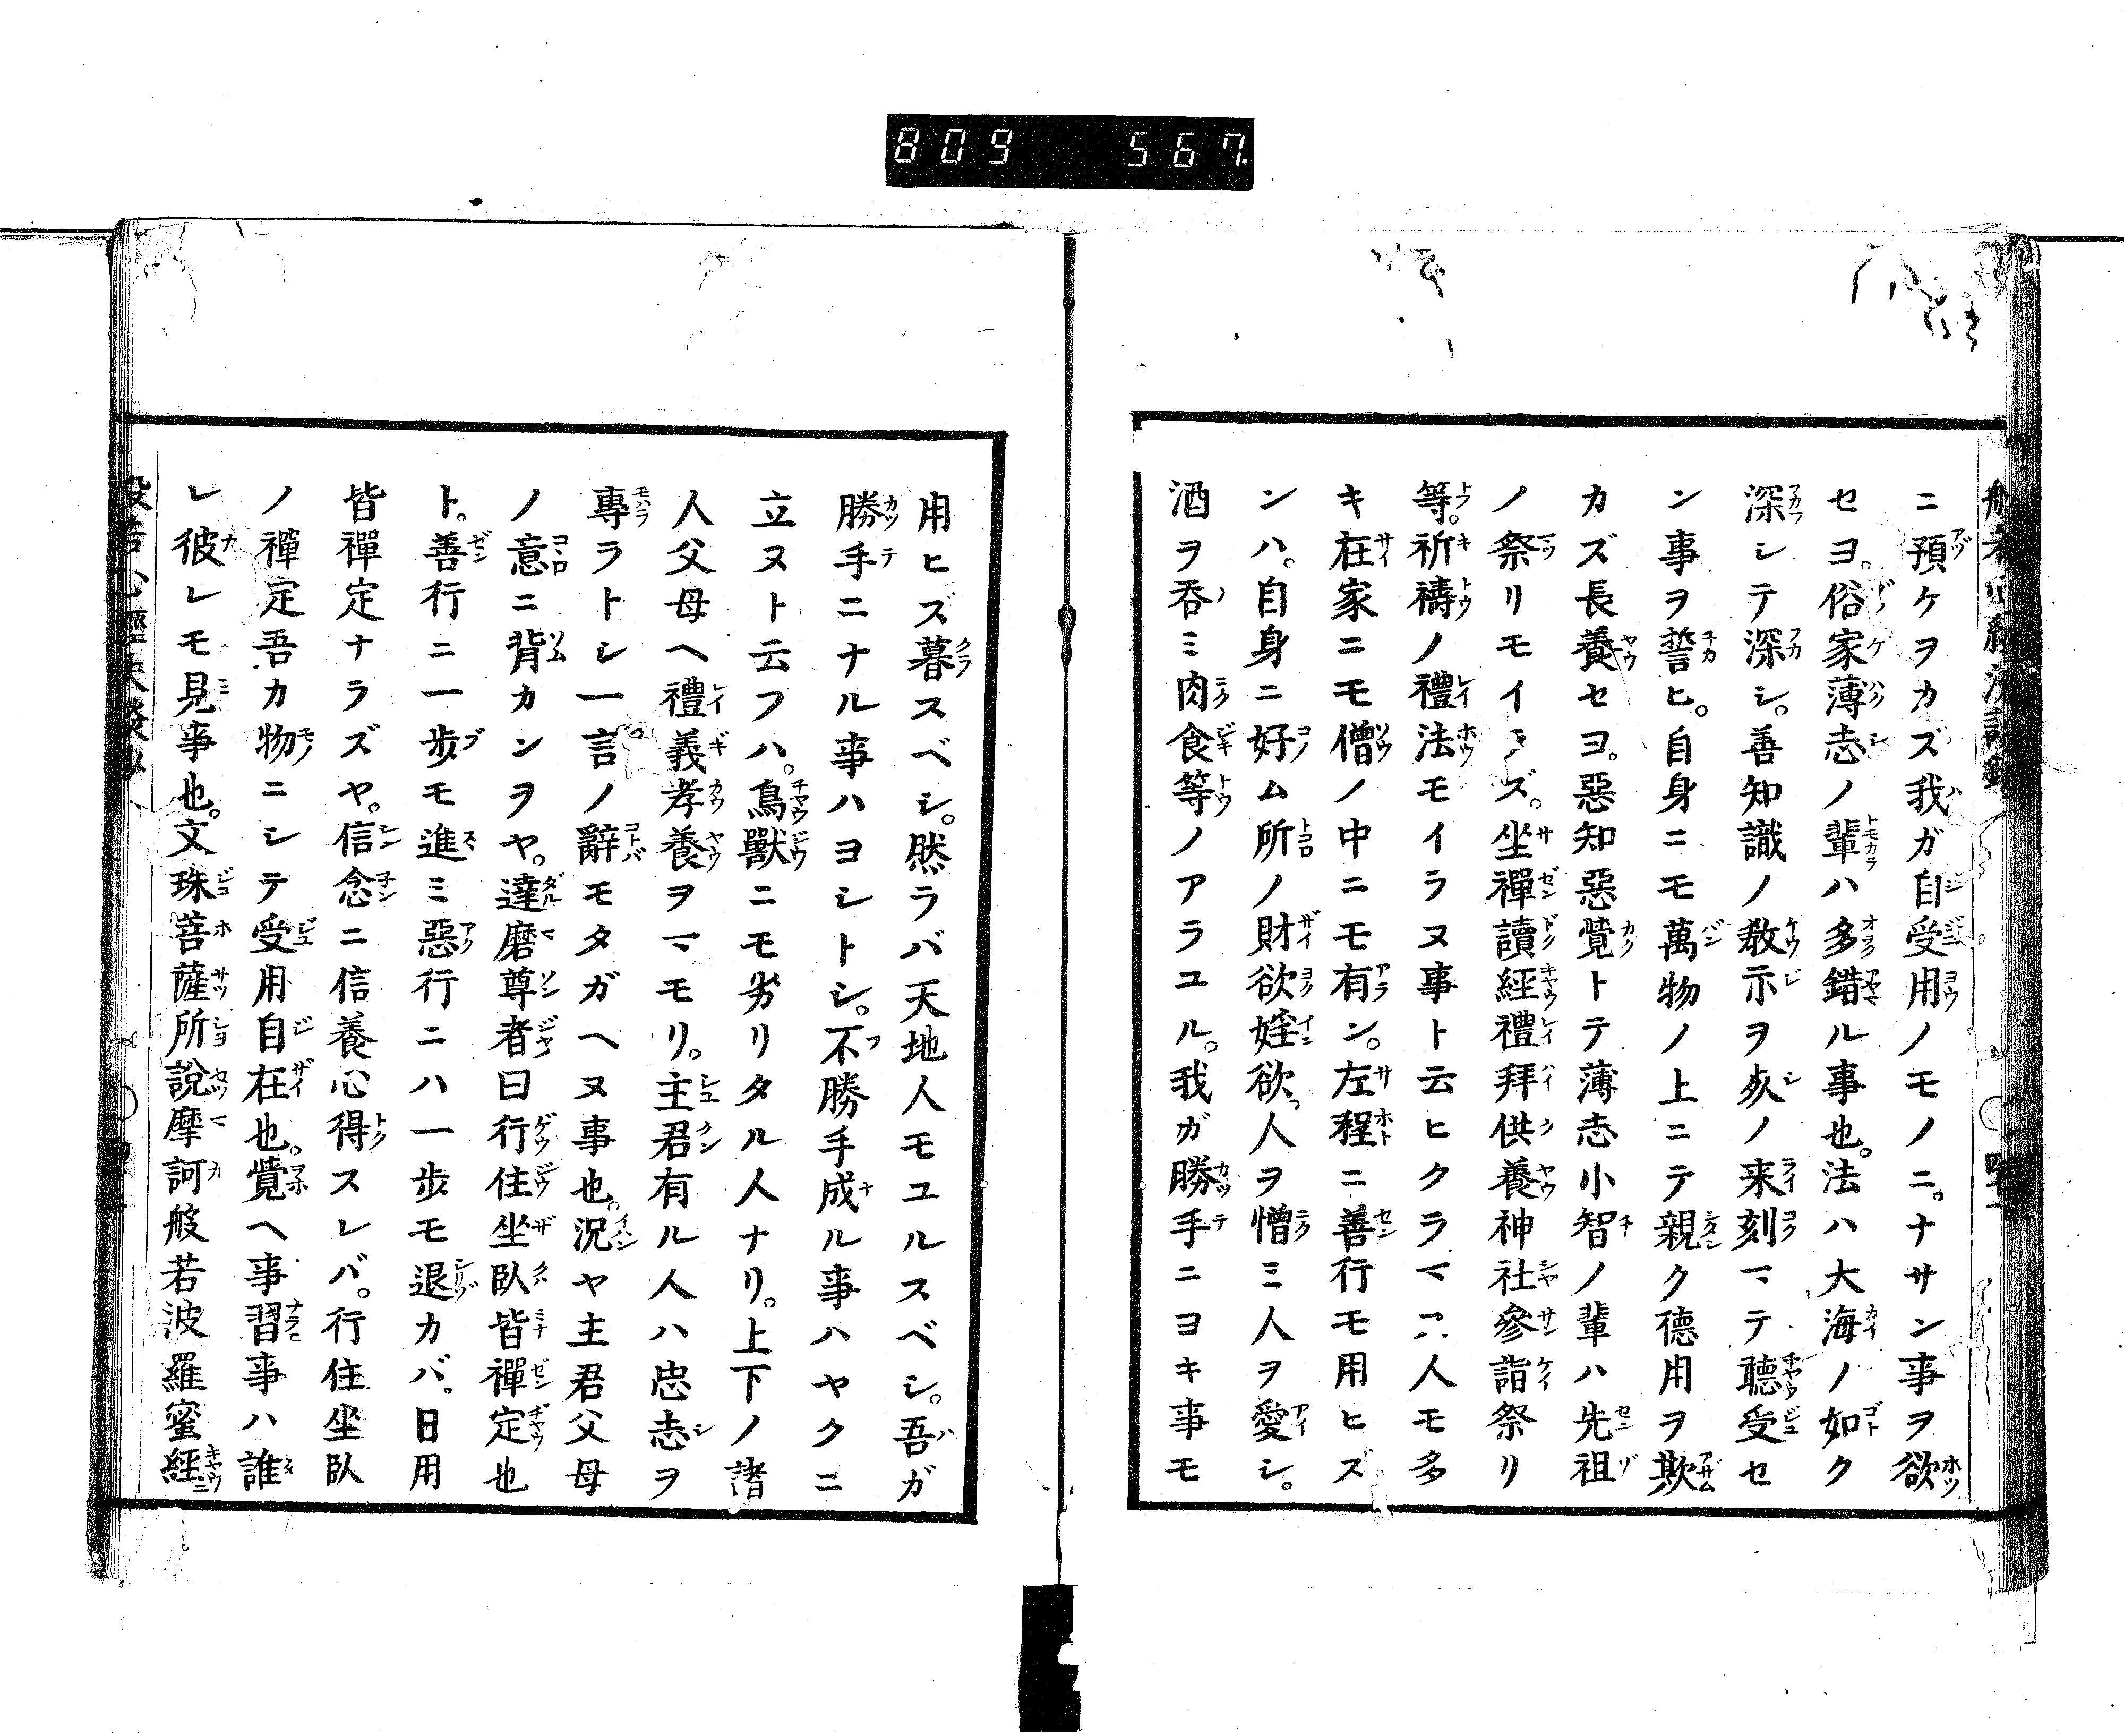 809 567
ニ預ケヲカズ我ガ自受用ノモノニ。ナサン事ヲ欲
セヨ。俗家薄志ノ輩ハ多錯ル事也。法ハ大海ノ如ク
深シテ深シ。善知識ノ敎示ヲ
ノ来刻マテ聽受セ
ン事ヲ誓ヒ。自身ニモ萬物ノ上ニテ親ク德用ヲ欺
カズ長養セヨ。惡知惡覺トテ薄志小智ノ輩ハ先祖
ノ祭リモイミズ。坐禪讀經禮拜供養神社參詣祭リ
等。祈禱ノ禮法モイラヌ事ト云ヒクラマス人モ多
キ在家ニモ僧ノ中ニモ有ン。左程ニ善行モ用ヒズ
ンハ。自身ニ好ム所ノ財欲婬欲。人ヲ憎ミ人ヲ愛シ。
酒ヲ呑ミ肉食等ノアラユル。我ガ勝手ニヨキ事モ
用ヒズ暮スベシ。然ラバ天地人モユルスベシ。吾ガ
勝手ニナル事ハヨシトシ。不勝手成ル事ハヤクニ
立ヌト云フハ。鳥獸ニモ劣リタル人ナリ。上下ノ諸
人父母ヘ禮義孝養ヲマモリ。主君有ル人ハ忠志ヲ
專ラトシ一言ノ辭モタガヘヌ事也。況ヤ主君父母
ノ意ニ背カンヲヤ。達磨尊者曰行住坐臥皆禪定也
ト。善行ニ一歩モ進ミ惡行ニハ一歩モ退カバ。日用
皆禪定ナラズヤ。信念ニ信養心得スレバ。行住坐臥
ノ禪定吾カ物ニシテ受用自在也。覺ヘ事習事ハ誰
レ彼レモ見事也。文珠菩薩所說摩訶般若波羅蜜經